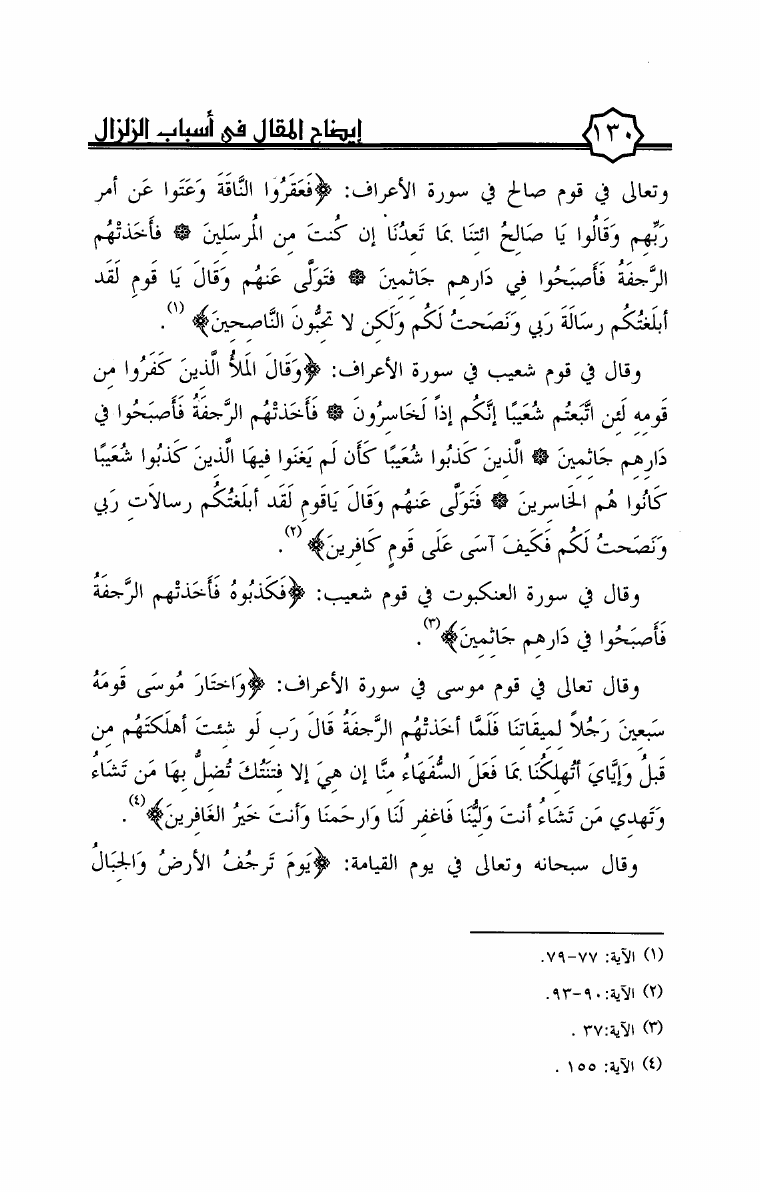 ١٣٠
إيضاح المقال في أسباب الزلزال
وتعالى في قوم صالح في سورة الأعراف: ﴿فَعَقَرُوا النَّاقَةَ وَعَتَوا عَن أمر
رَبِّهِم وَقَالُوا يَا صَالِحُ ائتِنَا بِمَا تَعِدُنَا إن كُنتَ مِن المُرسَلِينَ ۞ فأَخَذتْهُم
الرَّجفَةُ فَأَصبَحُوا فِي دَارِهِم جَاثِمِينَ ۞ فتَوَلَّى عَنهُم وَقَالَ يَا قَومِ لَقَد
أبلَغتُكُم رِسَالَةَ رَبِي وَنَصَحتُ لَكُم وَلَكِن لا تُحِبُّونَ النَّاصِحِينَ﴾ (١).
وقال في قوم شعيب في سورة الأعراف: ﴿وَقَالَ المَلأُ الَّذِينَ كَفَرُوا مِن
قَومِهِ لَئِن اتَّبَعتُم شُعَيبًا إنَّكُم إذاً لَخَاسِرُونَ ۞ فَأَخَذتْهُم الرَّجفَةُ فَأَصبَحُوا فِي
دَارِهِم جَاثِمِينَ ۞ الَّذِينَ كَذبُوا شُعَيبًا كَأَن لَم يَغنَوا فِيهَا الَّذِينَ كَذبُوا شُعَيبًا
كَانُوا هُم الخَاسِرِينَ ۞ فَتَوَلَّى عَنهُم وَقَالَ يَاقَومِ لَقَد أبلَغتُكُم رِسالَاتِ رَبِي
وَنَصَحتُ لَكُم فَكَيفَ آسَى عَلَى قَومٍ كَافِرِينَ﴾ (٢).
وقال في سورة العنكبوت في قوم شعيب: ﴿فَكَذبُوهُ فَأَخَذتْهم الرَّجفَةُ
فَأَصبَحُوا فِي دَارِهِم جَاثِمِينَ﴾(٣).
وقال تعالى في قوم موسى في سورة الأعراف: ﴿وَاختَارَ مُوسَى قَومَهُ
سَبعِينَ رَجُلاً لِمِيقَاتِنَا فَلَمَّا أخَذتْهُم الرَّجفَةُ قَالَ رَبِ لَو شِئتَ أهلَكتَهُم مِن
قَبلُ وَإيَّايَ أتُهلِكُنَا بِمَا فَعَلَ السُّفَهَاءُ مِنَّا إن هِيَ إلا فِتنَتُكَ تُضِلُّ بِهَا مَن تَشَاءُ
وَتَهدِي مَن تَشَاءُ أنتَ وَلِيُّنَا فَاغفِر لَنَا وَارحَمنَا وَأنتَ خَيرُ الغَافِرِينَ﴾(٤).
وقال سبحانه وتعالى في يوم القيامة: ﴿يَومَ تَرجُفُ الأرضُ وَالجِبَالُ
(١) الآية: ٧٧-٧٩.
(٢) الآية: ٩٠-٩٣.
(٣) الآية:٣٧ .
(٤) الآية: ١٥٥ .